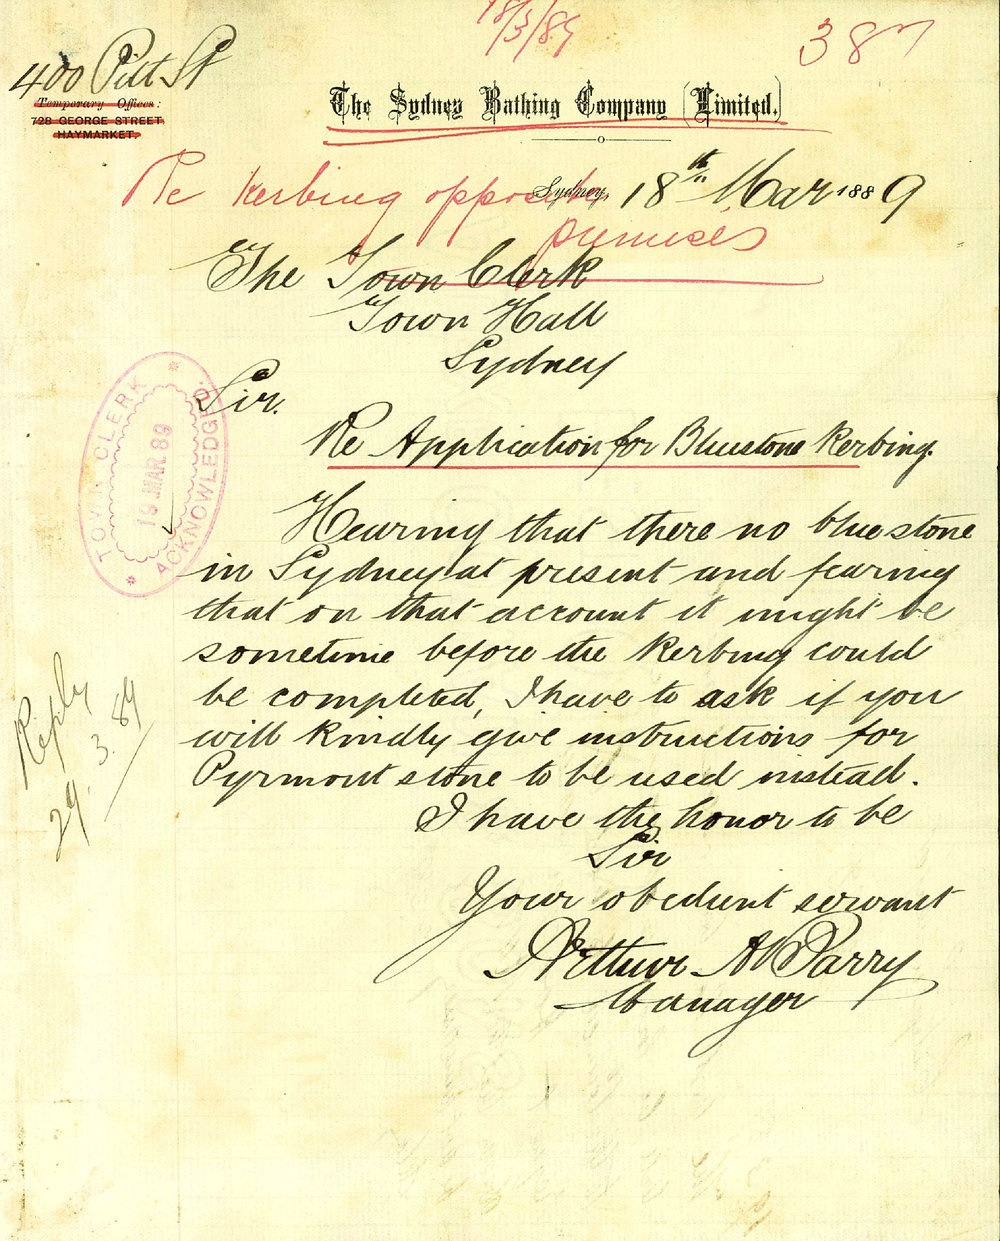 18/3/89
387
400 Pitt St
Temporary Offices:
728 GEORGE STREET
HAYMARKET.
The Sydney Bathing Company (Limited.)
Re Kerbing opposite
premises
Sydney, 18th Mar 1889
The Town Clerk
Town Hall
Sydney
Sir.
TOWN CLERK
19 MAR 89
ACKNOWLEDGED.
Re Application for Bluestone Kerbing.
Hearing that there no blue stone
in Sydney at present and fearing
that on that account it might be
sometime before the Kerbing could
be completed, I have to ask if you
will Kindly give instructions for
Pyrmont stone to be used instead.
I have the honor to be
Sir
Your obedient servant
Arthur W Parry
Manager
Reply
29.3.89